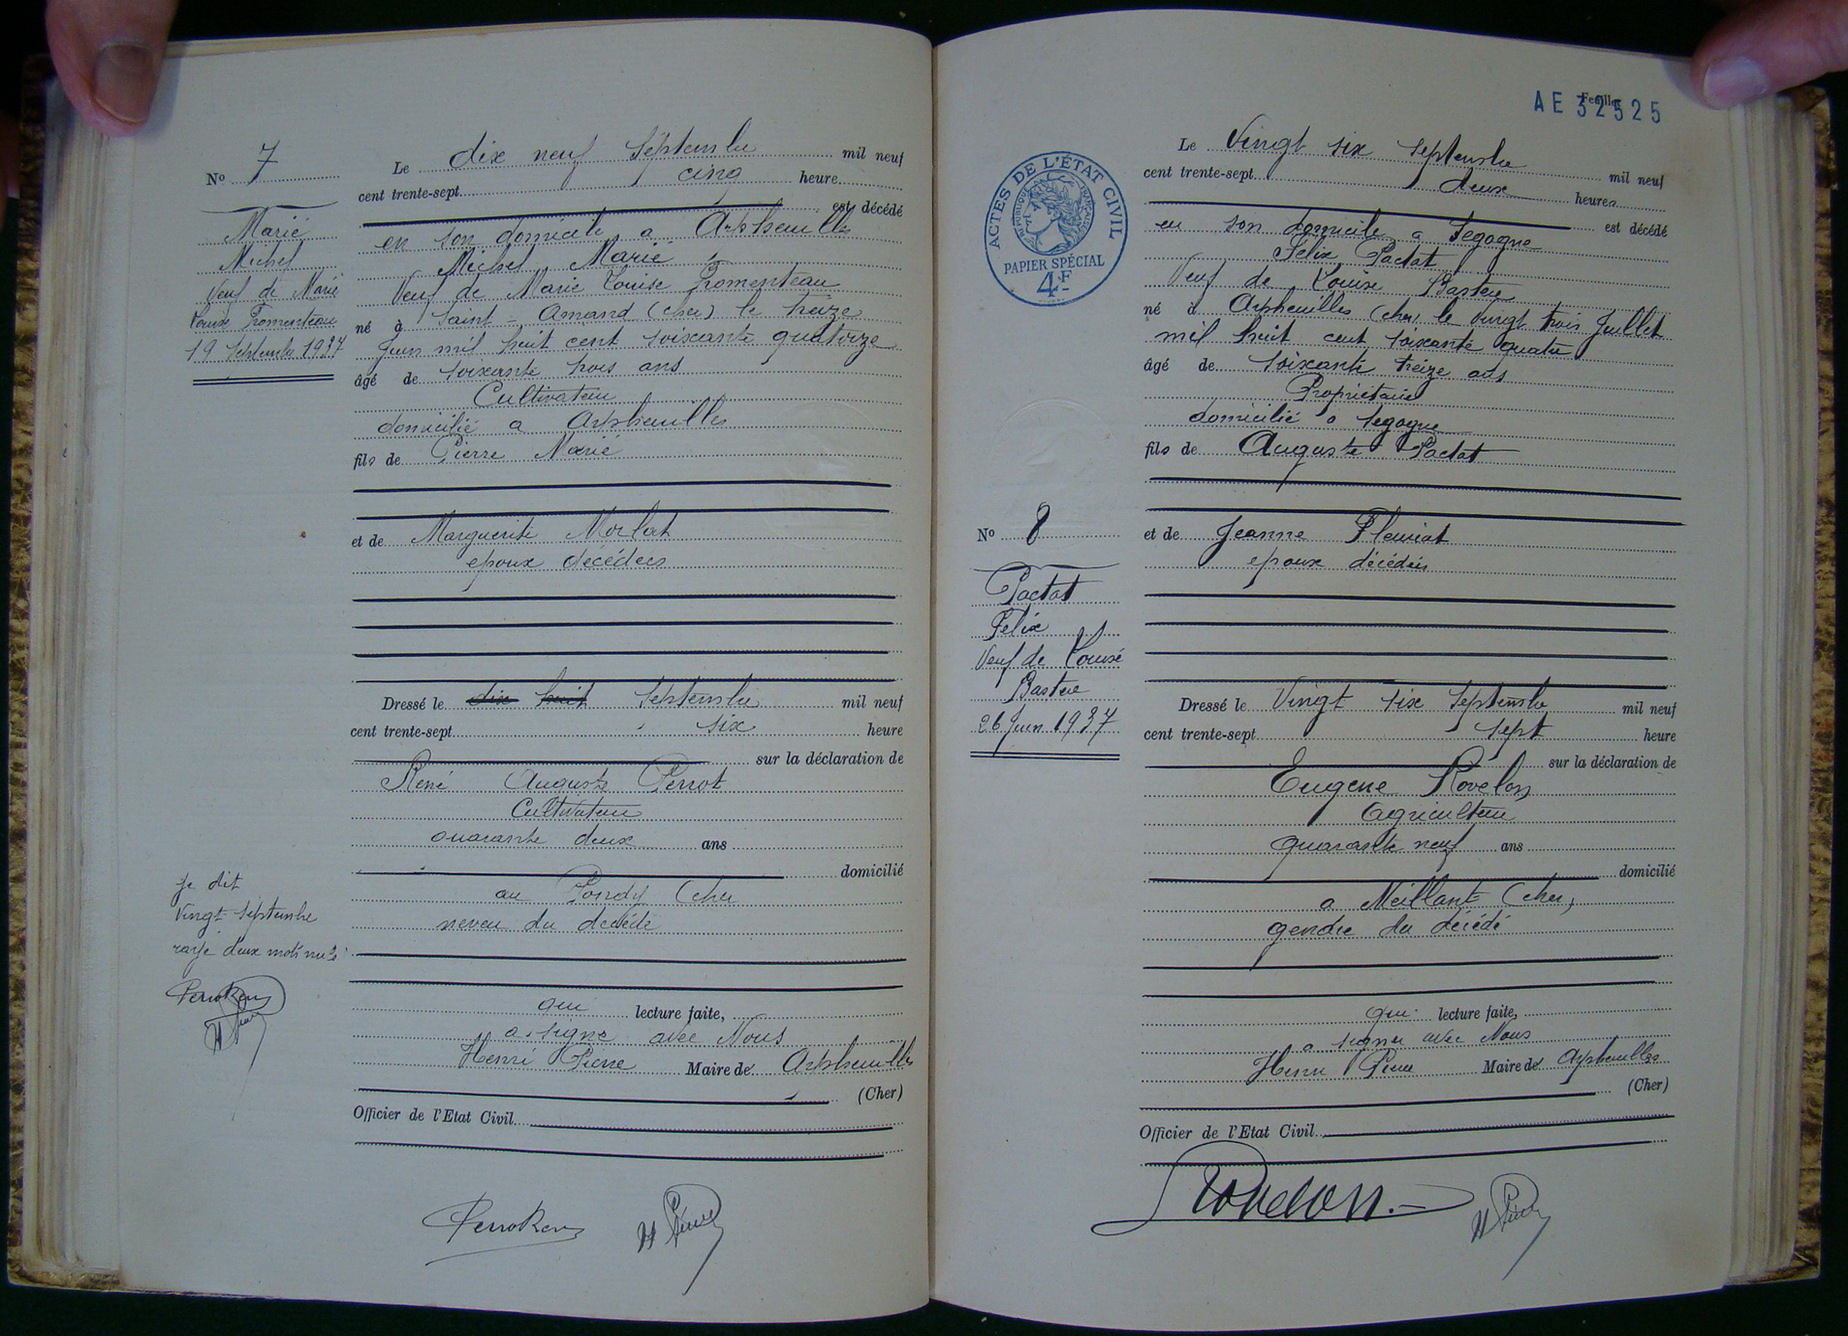 No 7
Marié
Michel
Veuf de Marie
Louise Fromenteau
19 Septembre 1937
Le dix neuf Septembre mil neuf
cent trente-sept cinq heure
est décédé
en son domicile a Arpheuilles
Michel Marié
Veuf de Marie Louise Fromenteau
né à Saint-Amand (Cher) le treize
Juin mil huit cent soixante quatorze
âgé de soixante trois ans
Cultivateur
domicilié a Arpheuilles
fils de Pierre Marié
et de Marguerite Morlat
epoux décédées
Dressé le dix huit Septembre mil neuf
cent trente-sept six heure
sur la déclaration de
René Auguste Perrot
Cultivateur
quarante deux ans
domicilié
au Pondy (Cher
neveu du décédé
qui lecture faite,
a signé avec Nous
Henri Pierre Maire de Arpheuilles
(Cher)
Officier de l'Etat Civil
je dit
Vingt Septembre
rayé deux mots nuls
Feuille
AE 32525
ACTES DE L'ÉTAT CIVIL
RÉPUBLIQUE FRANÇAISE
PAPIER SPÉCIAL
4F
Le Vingt six Septembre
mil neuf
cent trente-sept deux heures
est décédé
en son domicile a Segogne
Félix Pactat
Veuf de Louise Bastere
né à Arpheuilles (Cher) le vingt trois Juillet
mil huit cent soixante quatre
âgé de soixante treize ans
Propriétaire
domicilié a Segogne
fils de Auguste Pactat
No 8
Pactat
Félix
Veuf de Louise
Bastere
26 Juin 1937
et de Jeanne Fleuriat
epoux décédés
Dressé le Vingt six Septembre mil neuf
cent trente-sept sept heure
sur la déclaration de
Eugene Rovelon
agriculteur
quarante neuf ans
domicilié
a Meillant (Cher)
gendre du décédé
qui lecture faite,
a signer avec Nous
Henri Pierre Maire de Arpheuilles
(Cher)
Officier de l'Etat Civil